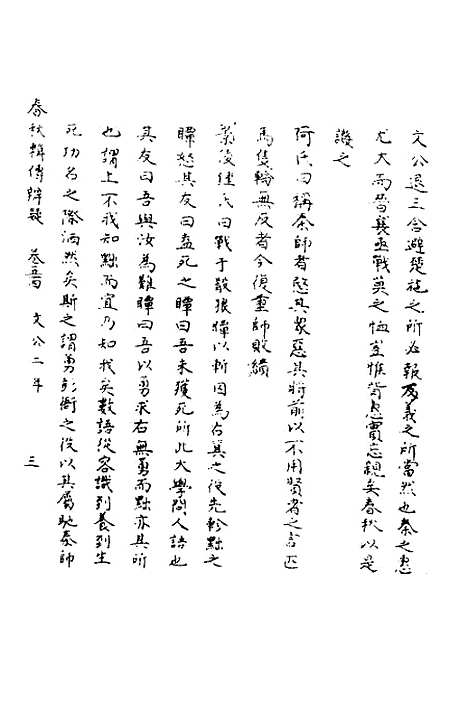 文公退三舍避楚施之所必報及義之所當然也秦之惠
尤大而晉襄亟戰莫之恤豈惟背惠實忘親矣春秋以是
譏之
何氏曰稱秦師者愍其衆惡其將前以不用賢者之言匹
馬隻輪無反者今復重師敗績
葉後继氏曰戰于殽狼瞫以斬囚為右箕之役先軫黜之
瞫怒其友曰盍死之瞫曰吾未獲死所几大學問人語也
其友曰吾與汝為難瞫曰吾以勇求右無勇而黜亦其所
也謂上不我知黜而宜乃知我矣數語從容識到養到生
死功名之際洒然矣斯之謂勇彭衙之役以其屬馳秦師
春秋輯傳辨疑 卷 文公二年 三